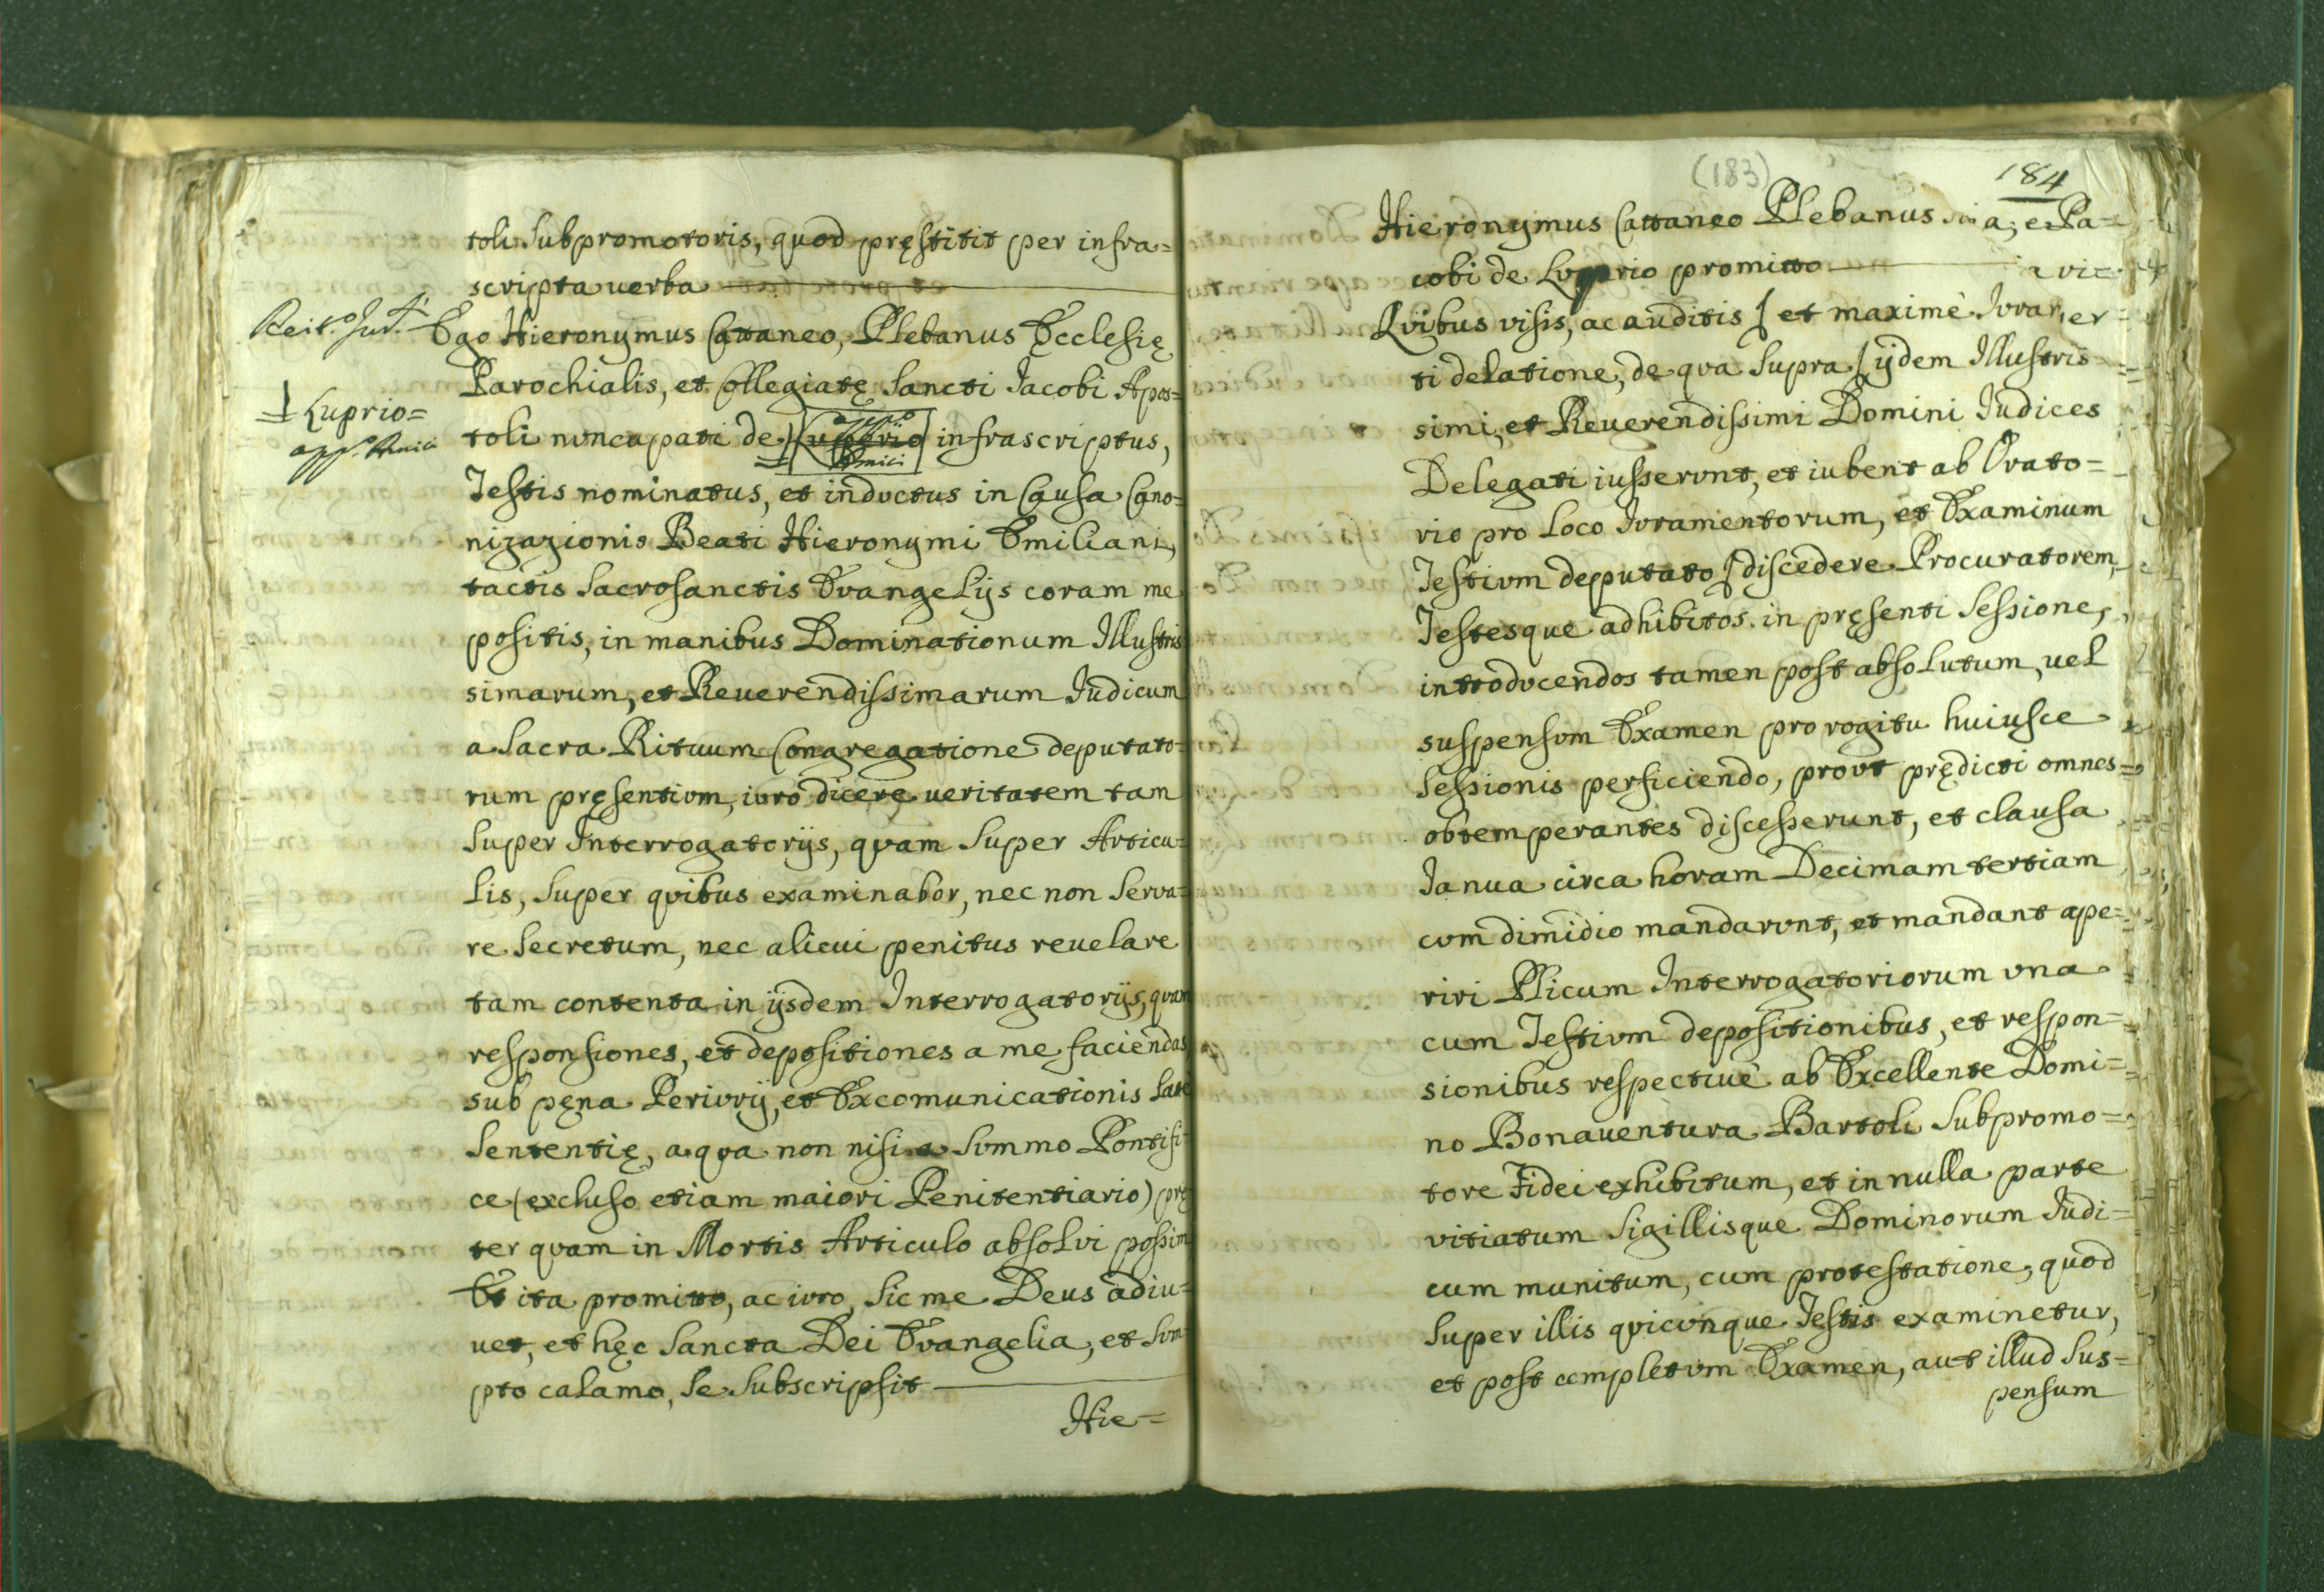 toli Subpromotoris, quod pręstitit per infra=
scripta uerba
Ego Hieronymus Cattaneo, Plebanus Ecclesię
Parochialis, et Collegiatę Sancti Jacobi Apos=
toli nuncupati de infrascriptus,
Luprio=
Testis nominatus, et inductus in Causa Cano=
nizazionis Beati Hieronymi Emiliani,
tactis Sacrosanctis Evangelijs coram me
positis, in manibus Dominationum Illustris
simarum, et Reuerendissimarum Iudicum
a Sacra Rituum Congregatione deputato=
rum pręsentium, iuro dicere ueritatem tam
super Interrogatorijs, quam super Articu=
lis, super quibus examinabor, nec non serva=
re Secretum, nec alicui penitus reuelare
tam contenta in ijsdem Interrogatorijs, quam
responsiones, et depositiones a me faciendas
sub pęna Periurij, et Excomunicationis latę
Sententię, a qua non nisi a Summo Pontifi=
ce (excluso etiam maiori Penitentiario) prę
ter quam in Mortis Articulo absolui possim
Et ita promitto, ac iuro, sic me Deus adiu=
uet, et hęc Sancta Dei Evangelia, et Sum
pto calamo, se subscripsit
Hie=
(183)
184
Hieronymus Cattaneo Plebanus
cobi de Luprio promitto
Quibus visis, ac auditis / et maximè
ti delatione, de qua supra / ijdem Illustris=
simi, et Reuerendissimi Domini Iudices
Delegati iusserunt, et iubent ab Orato=
rio pro loco Iuramentorum, et Examinum
Testium deputato / discedere Procuratorem,
Testesque adhibitos in pręsenti Sessione,
introducendos tamen post absolutum, uel
suspensum Examen pro rogitu huiusce
Sessionis perficiendo, prout prędicti omnes
obtemperantes discesserunt, et clausa
Ianua circa horam Decimam tertiam
cum dimidio mandarunt, et mandant ape=
riri Plicum Interrogatoriorum una
cum Testium depositionibus, et respon=
sionibus respectiuè ab Excellente Domi=
no Bonauentura Bartoli Subpromo=
tore Fidei exhibitum, et in nulla parte
vitiatum Sigillisque Dominorum Iudi=
cum munitum, cum protestatione, quod
super illis quicunque Testis examinetur,
et post completum Examen, aut illud sus=
pensum